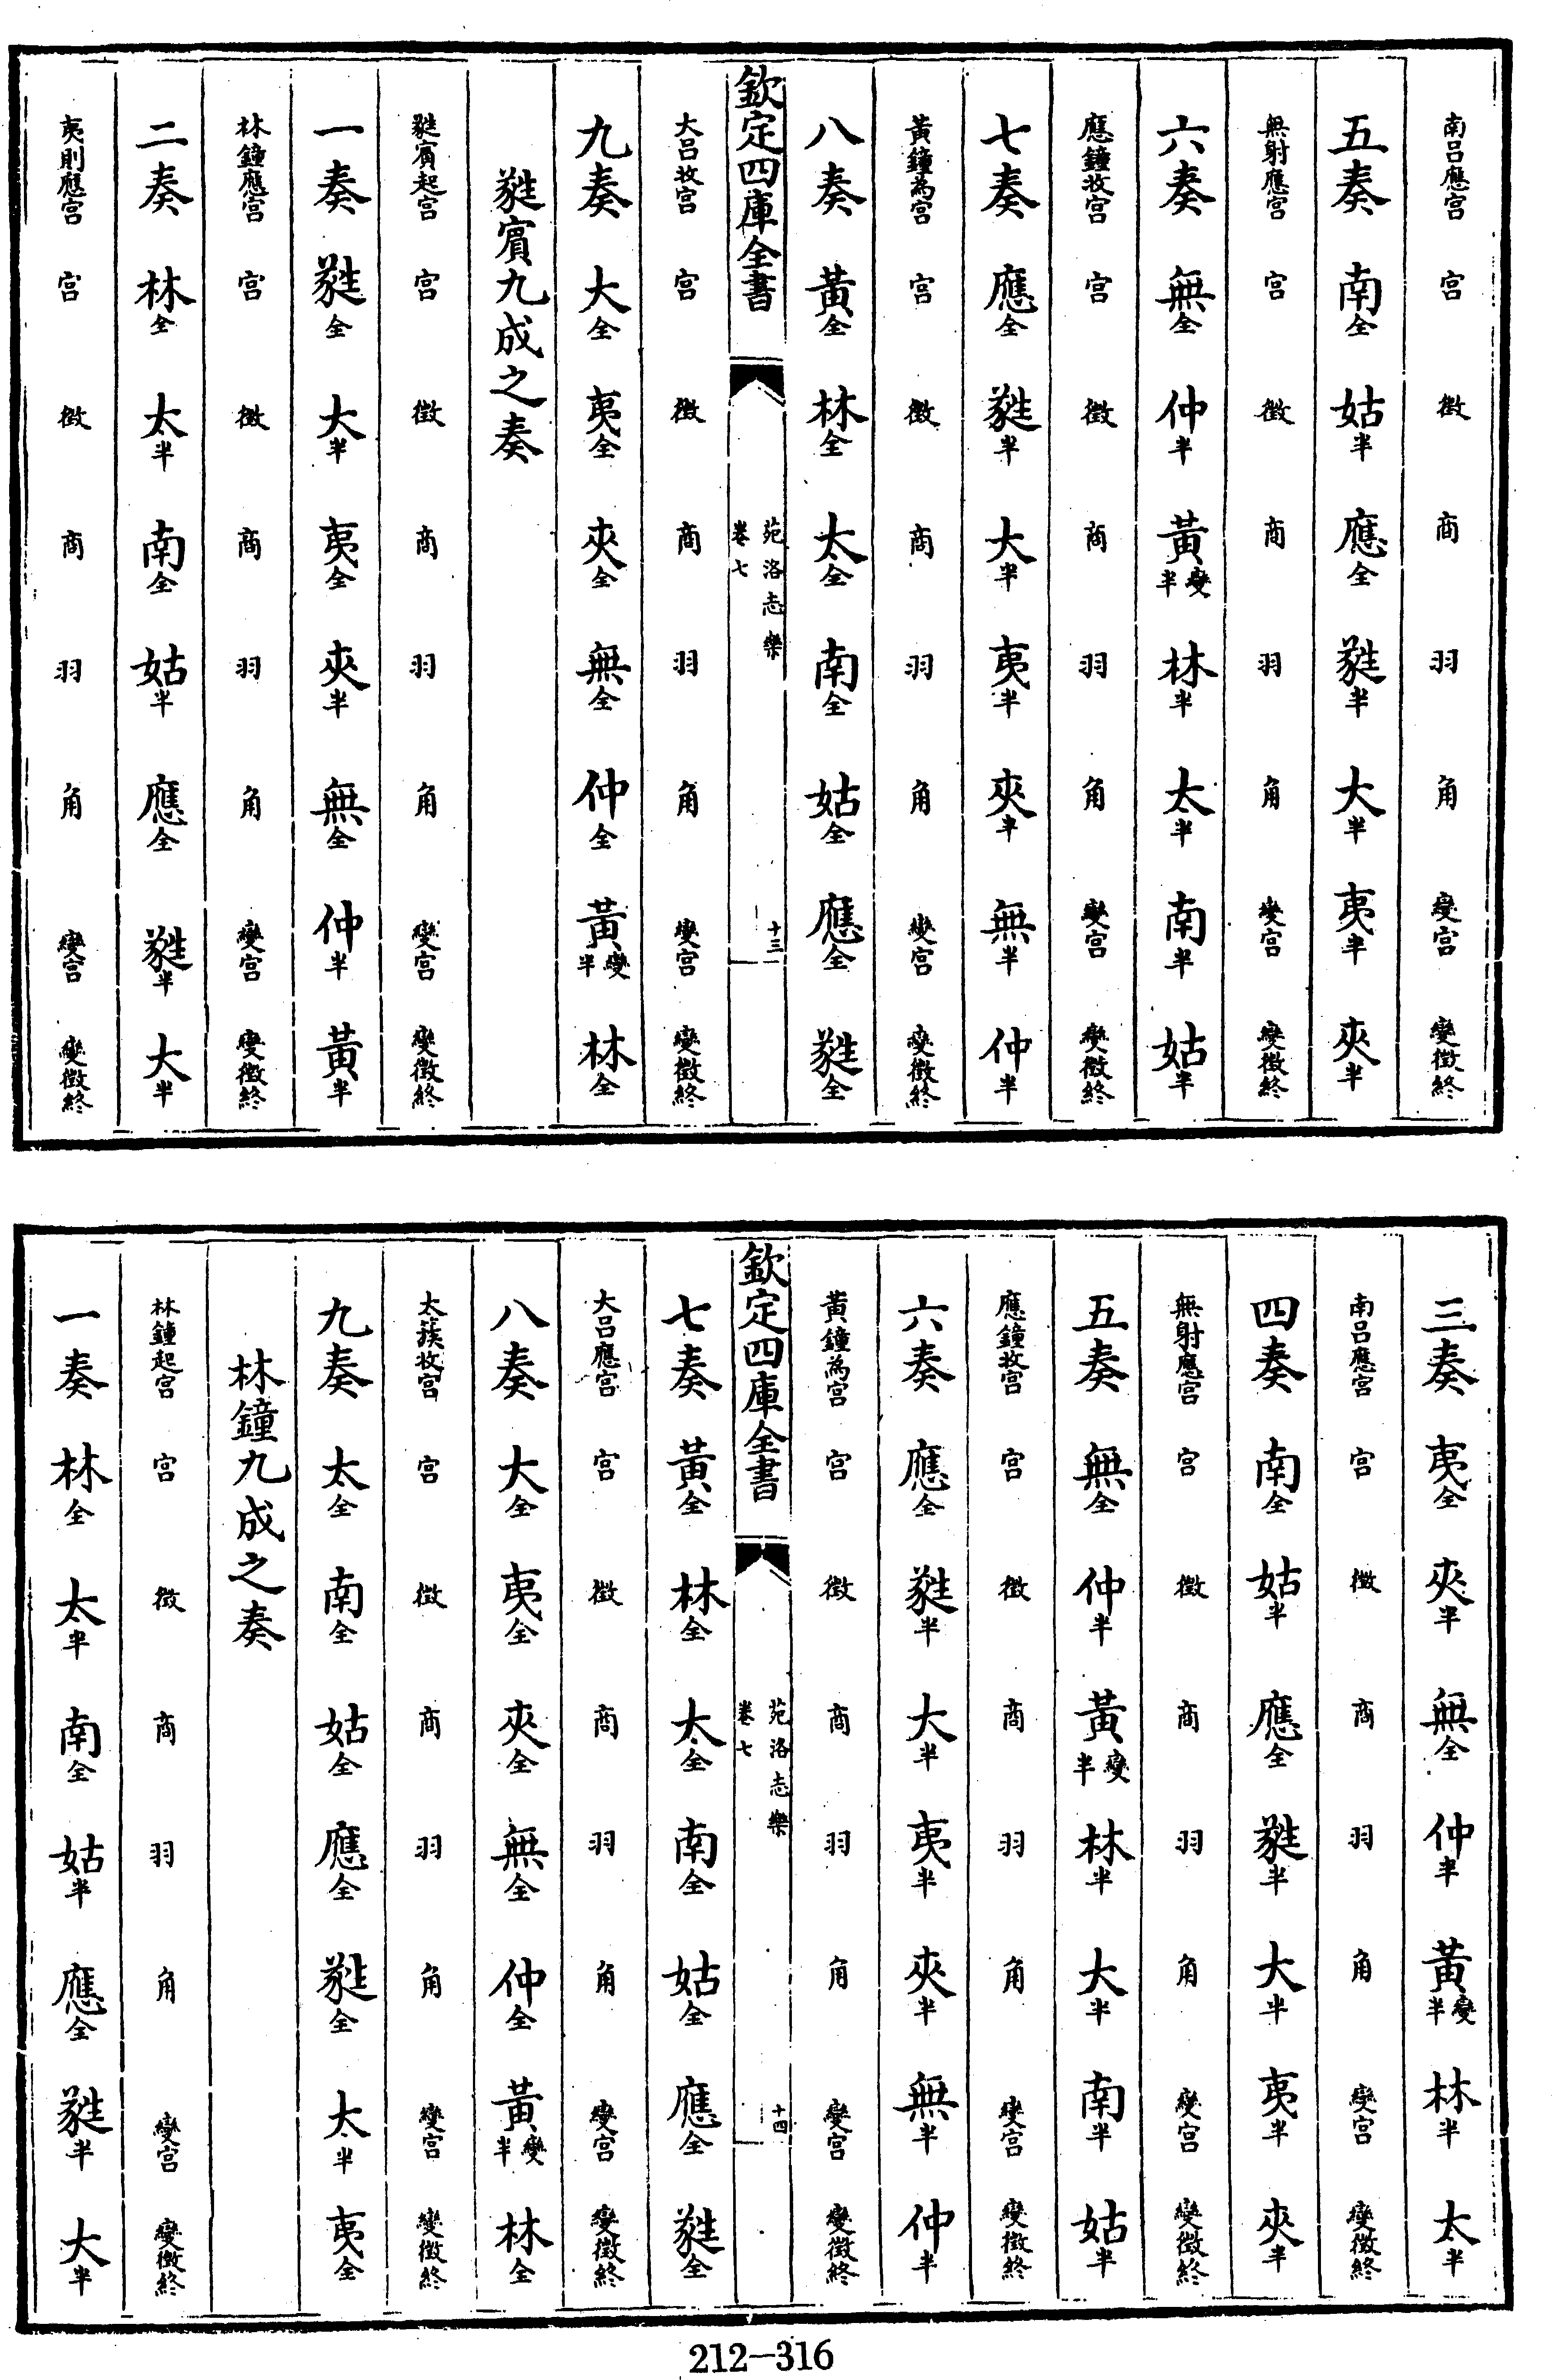 南呂應宮 宮 徵 商 羽 角 變宮 變徵終
五奏 南全 姑半 應全 蕤半 大半 夷半 夾半
無射應宮 宮 徵 商 羽 角 變宮 變徵終
六奏 無全 仲半 黃變半 林半 太半 南半 姑半
應鐘收宮 宮 徵 商 羽 角 變宮 變徵終
七奏 應全 蕤半 大半 夷半 夾半 無半 仲半
黃鐘為宮 宮 徵 商 羽 角 變宮 變徵終
八奏 黃全 林全 太全 南全 姑全 應全 蕤全
欽定四庫全書 苑洛志樂 卷七 十三
大呂收宮 宮 徵 商 羽 角 變宮 變徵終
九奏 大全 夷全 夾全 無全 仲全 黃變半 林全
蕤賓九成之奏
蕤賓起宮 宮 徵 商 羽 角 變宮 變徵終
一奏 蕤全 大半 夷全 夾半 無全 仲半 黃半
林鐘應宮 宮 徵 商 羽 角 變宮 變徵終
二奏 林全 太半 南全 姑半 應全 蕤半 大半
夷則應宮 宮 徵 商 羽 角 變宮 變徵終
三奏 夷全 夾半 無全 仲半 黃變半 林半 太半
南呂應宮 宮 徵 商 羽 角 變宮 變徵終
四奏 南全 姑半 應全 蕤半 大半 夷半 夾半
無射應宮 宮 徵 商 羽 角 變宮 變徵終
五奏 無全 仲半 黃變半 林半 大半 南半 姑半
應鐘收宮 宮 徵 商 羽 角 變宮 變徵終
六奏 應全 蕤半 大半 夷半 夾半 無半 仲半
黃鐘為宮 宮 徵 商 羽 角 變宮 變徵終
欽定四庫全書 苑洛志樂 卷七 十四
七奏 黃全 林全 太全 南全 姑全 應全 蕤全
大呂應宮 宮 徵 商 羽 角 變宮 變徵終
八奏 大全 夷全 夾全 無全 仲全 黃變半 林全
太蔟收宮 宮 徵 商 羽 角 變宮 變徵終
九奏 太全 南全 姑全 應全 蕤全 太半 夷全
林鐘九成之奏
林鐘起宮 宮 徵 商 羽 角 變宮 變徵終
一奏 林全 太半 南全 姑半 應全 蕤半 大半
212-316